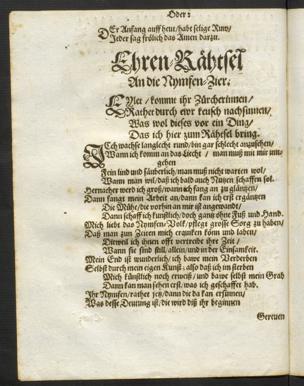 Oder:
DEr Anfang auff heut/habt selige Ruw/
Jeder sag frölich das Amen darzu.
Ehren-Rähtsel
An die Nymfen-Zier.
Eylet / komme ihr Zürcherinnen/
Rathet durch ewr keusch nachsinnen/
Was wol dieses vor ein Ding/
Das ich hier zum Rähtsel bring.
ICh wachse langlecht rund/bin gar schlecht anzusehen/
Wann ich komm an das Liecht / man muß mit mir umgehen
Fein lind und säuberlich/man muß nicht warten wol/
Wann man wil/daß ich bald auch Nutzen schaffen sol.
Hernacher werd ich groß/wann ich fang an zu gläntzen/
Dann fangt mein Arbeit an/dann kan ich erst ergäntzen
Die Mühe/die vorhin an mir ist angewandt/
Dann schaff ich künstlich/doch gantz ohne Fuß und Hand.
Mich liebt das Nymfen-Volk/pflegt grosse Sorg zu haben/
Daß man zum Zeiten mich erquicken könn und laben/
Dieweil ich ihnen offt vertreibe ihre Zeit
Wann sie sind still/allein/und in der Einsamkeit.
Mein End ist wunderlich/ich bawe mein Verderben
Selbst durch mein eigen Kunst; also daß ich im sterben
Mich künstlich noch erweiß/und bawe selbst mein Grab
Dann kan man sehen erst/was ich geschaffet hab.
Ihr Nymfen/rathet jetz/dann die da kan ersinnen/
Was dessen Deutung ist/die wird diß ihr beginnen